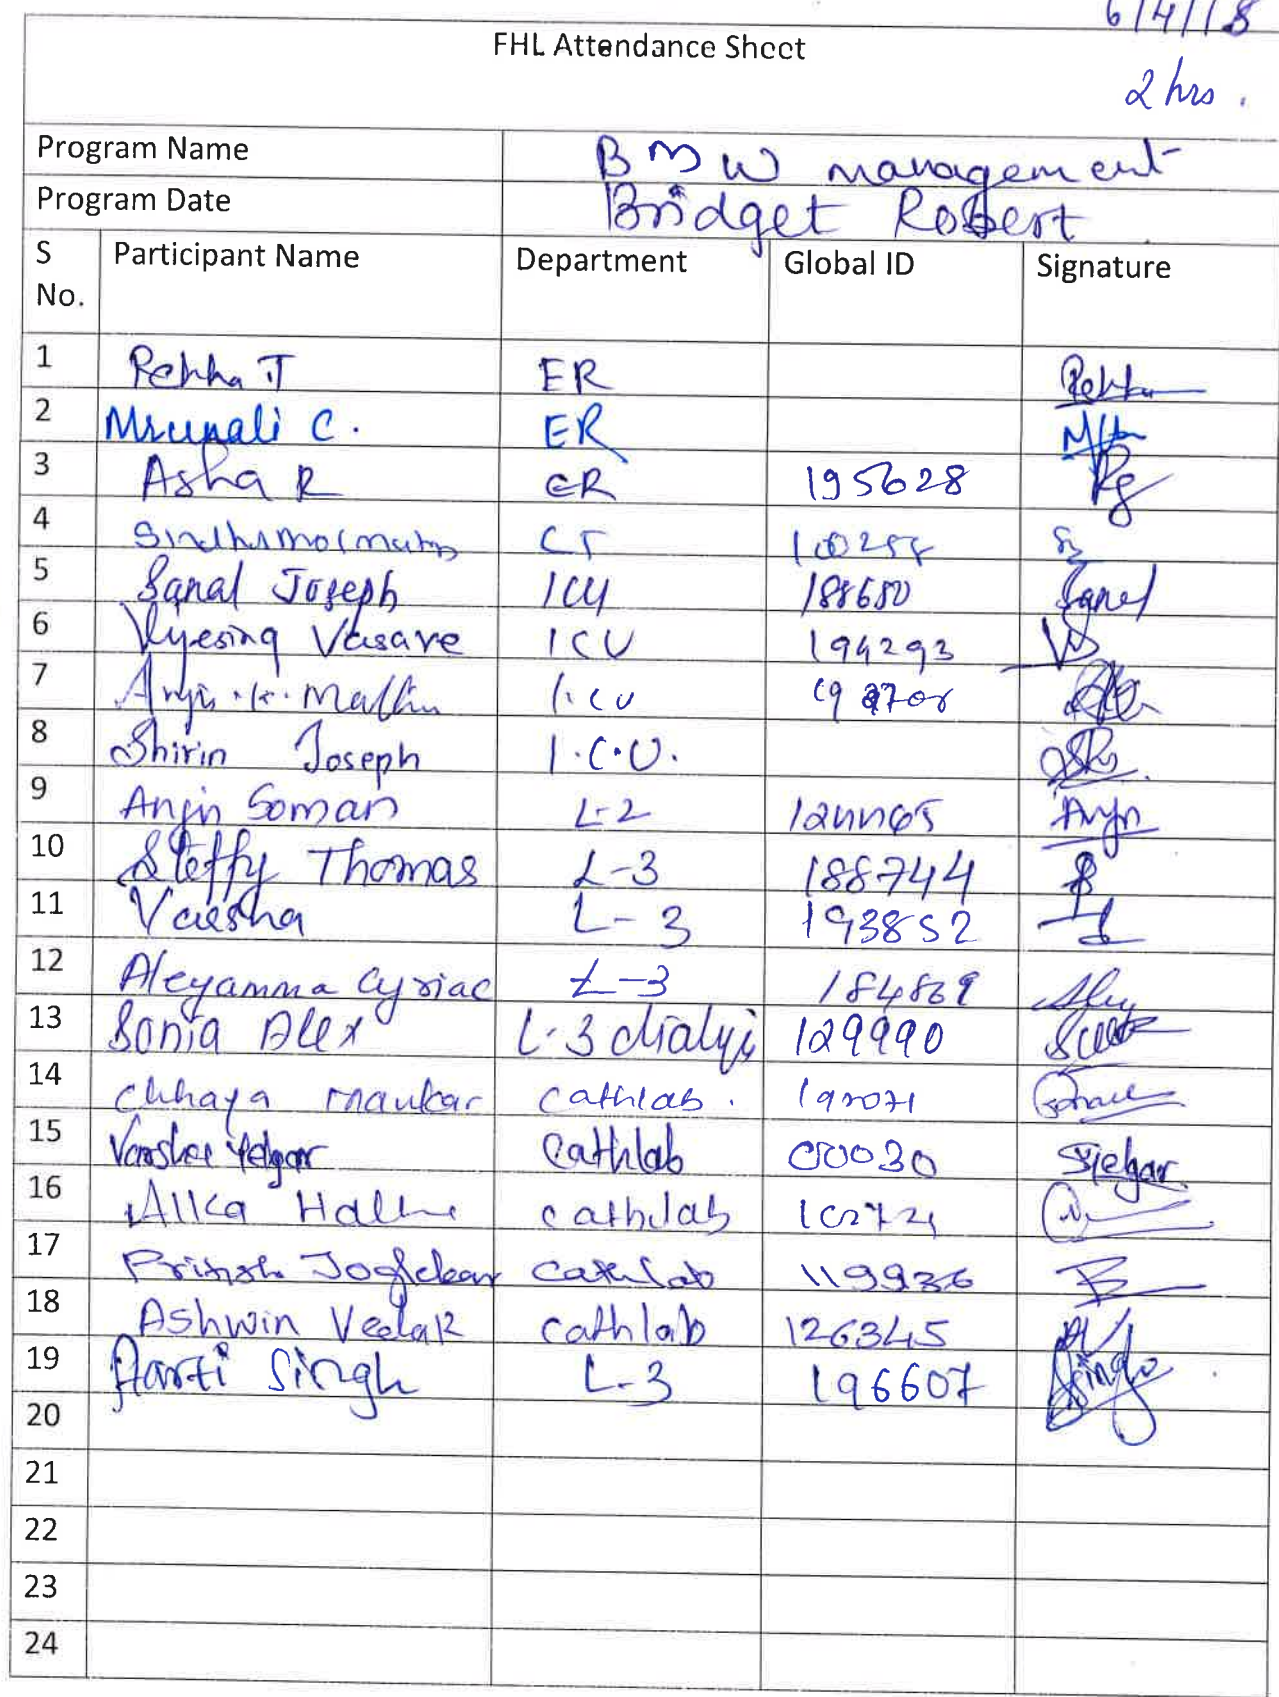 6/4/18
FHL Attendance Sheet
2 hrs.
Program Name BMW management
Program Date Bridget Robert
S No. Participant Name Department Global ID Signature
1 Rekha T ER Rekha
2 Mrunali C. ER
3 Asha R ER 195628
4 CT
5 Sanal Joseph ICU 188680 Sanal
6 Vasave ICU 194293
7 I.CU
8 Shirin Joseph I.C.U.
9 Anjn Soman L-2 Anjn
10 Steffy Thomas L-3 188744
11 Varsha L-3 193852
12 Aleyamma Cyriac L-3 184869 Aley
13 Sonia Alex L-3 129990
14 Chhaya mankar Cathlab.
15 Yelgar Cathlab 00030
16 Alka cathlab
17 Joglekar Cathlab 119936
18 Ashwin Veelak Cathlab 126345
19 Aarti Singh L-3 196607 Singh
20
21
22
23
24